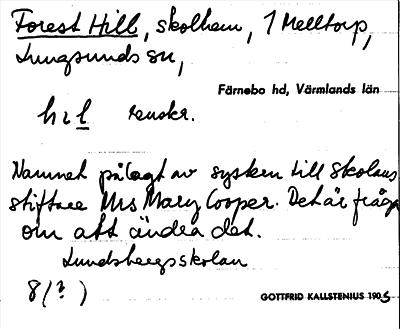 Forest Hill, skolhem, 1 Melltorp,
Lungsunds sn,
Färnebo hd, Värmlands län
h i l renskr.
Namnet pålagt av syskon till skolans
stiftare Mrs Mary Cooper. Det är fråga
om att ändra det.
Lundsbergsskolan
8(?)
GOTTFRID KALLSTENIUS 1905